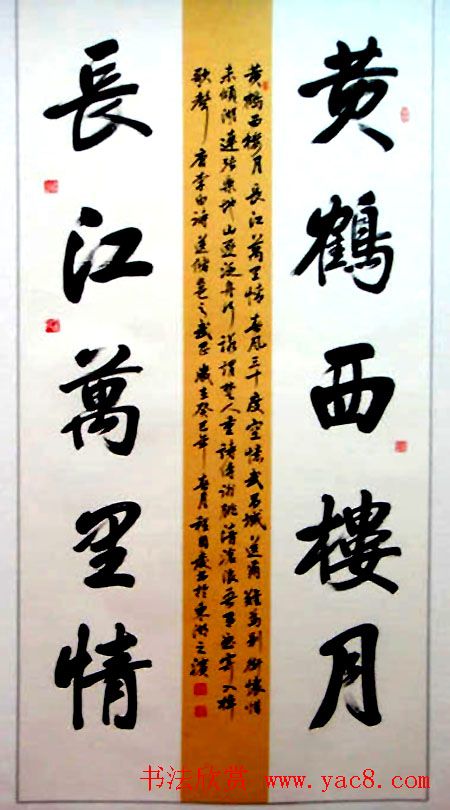 黄鶴西樓月
黄鶴西樓月長江萬里情春風三十度空憶武昌城送爾難為别銜惜
未傾湖連張樂地山逐泛舟行諾謂楚人重詩傳謝朓清滄浪吾有曲寄入棹
歌聲 唐李白詩送儲邕之武昌 歲在癸巳年春月程國書於東湖之濱
長江萬里情
书法欣赏 www.yac8.com